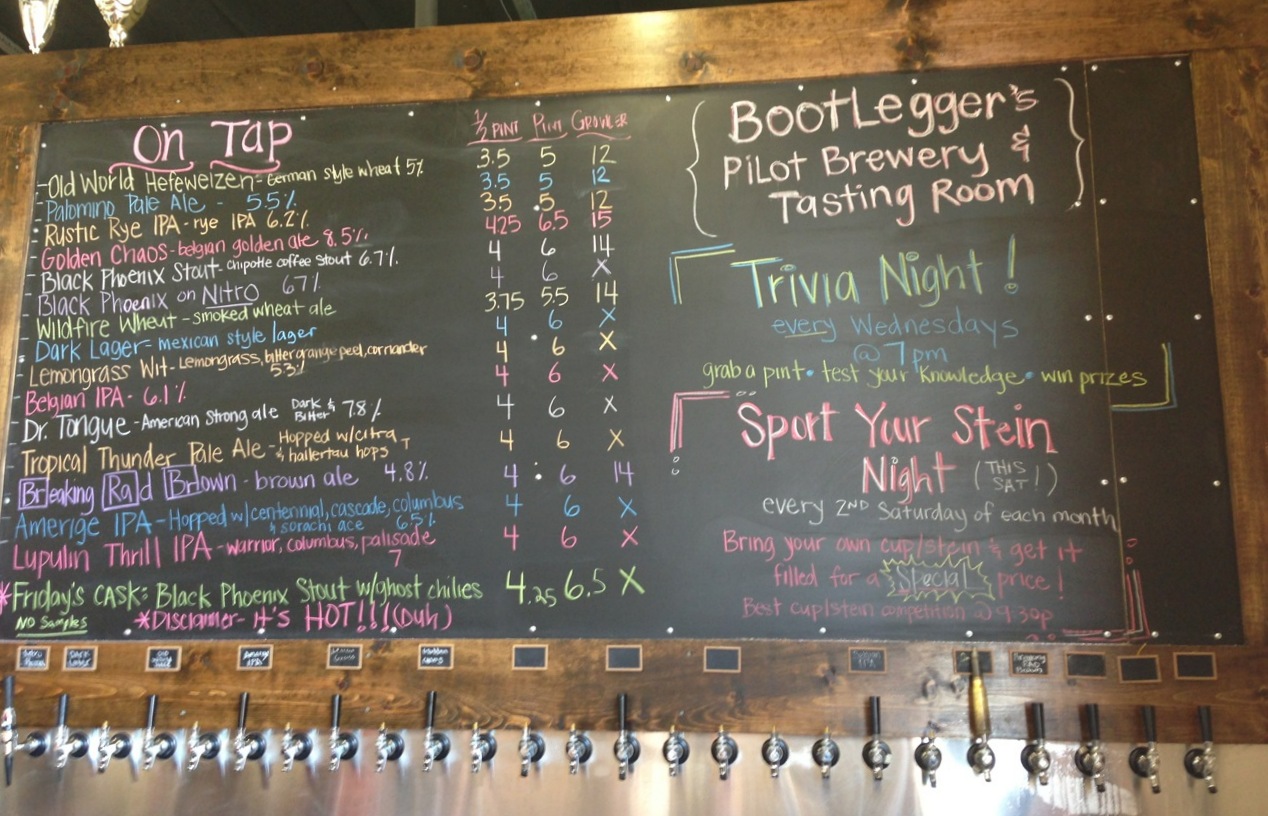 On Tap ½ Pint Pint Growler
- Old World Hefeweizen - German style wheat 5% 3.5 5 12
- Palomino Pale Ale - 5.5% 3.5 5 12
- Rustic Rye IPA - rye IPA 6.2% 3.5 5 12
- Golden Chaos - belgian golden ale 8.5% 425 6.5 15
- Black Phoenix Stout - chipotle coffee stout 6.7% 4 6 14
- Black Phoenix on Nitro 67% 4 6 X
- Wildfire Wheat - smoked wheat ale 3.75 5.5 14
- Dark Lager - mexican style lager 4 6 X
- Lemongrass Wit - Lemongrass, bitter orange peel, corriander 4 6 X
5.3%
- Belgian IPA - 6.1% 4 6 X
- Dr. Tongue - American Strong ale Dark & Bitter 7.8% 4 6 X
- Tropical Thunder Pale Ale - Hopped w/citra 4 6 X
& hallertau hops
- Breaking Rad Brown - brown ale 4.8% 4 6 14
- Amerige IPA - Hopped w/centennial, cascade, columbus 4 6 X
& sorachi ace 65%
- Lupulin Thrill IPA - warrior, columbus, palisade 4 6 X
7
*Friday's CASK: Black Phoenix Stout w/ghost chilies 4.25 6.5 X
NO Samples *Disclaimer - it's HOT!!! (Duh)
BootLegger's
&
Pilot Brewery
Tasting Room
Trivia Night!
every Wednesdays
@ 7pm
grab a pint • test your knowledge • win prizes
Sport Your Stein
Night (THIS SAT!)
every 2ND Saturday of each month
Bring your own cup/stein & get it
filled for a Special price!
Best cup/stein competition @ 9:30p